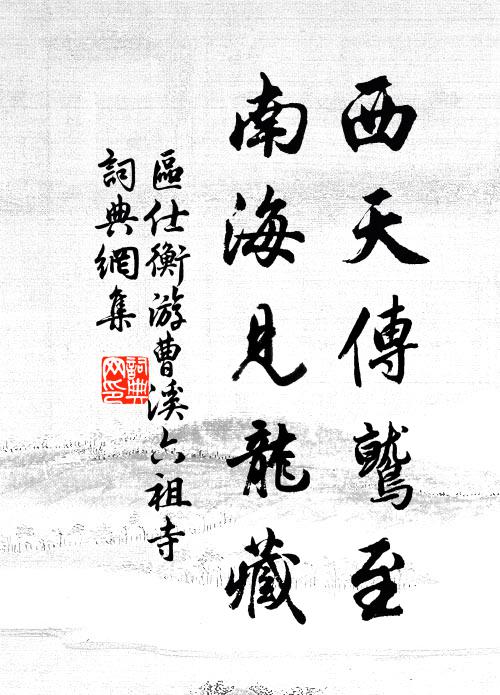 西天傳鷲至
南海見龍藏
區仕衡游曹溪六祖寺
詞典網集
詞典网印